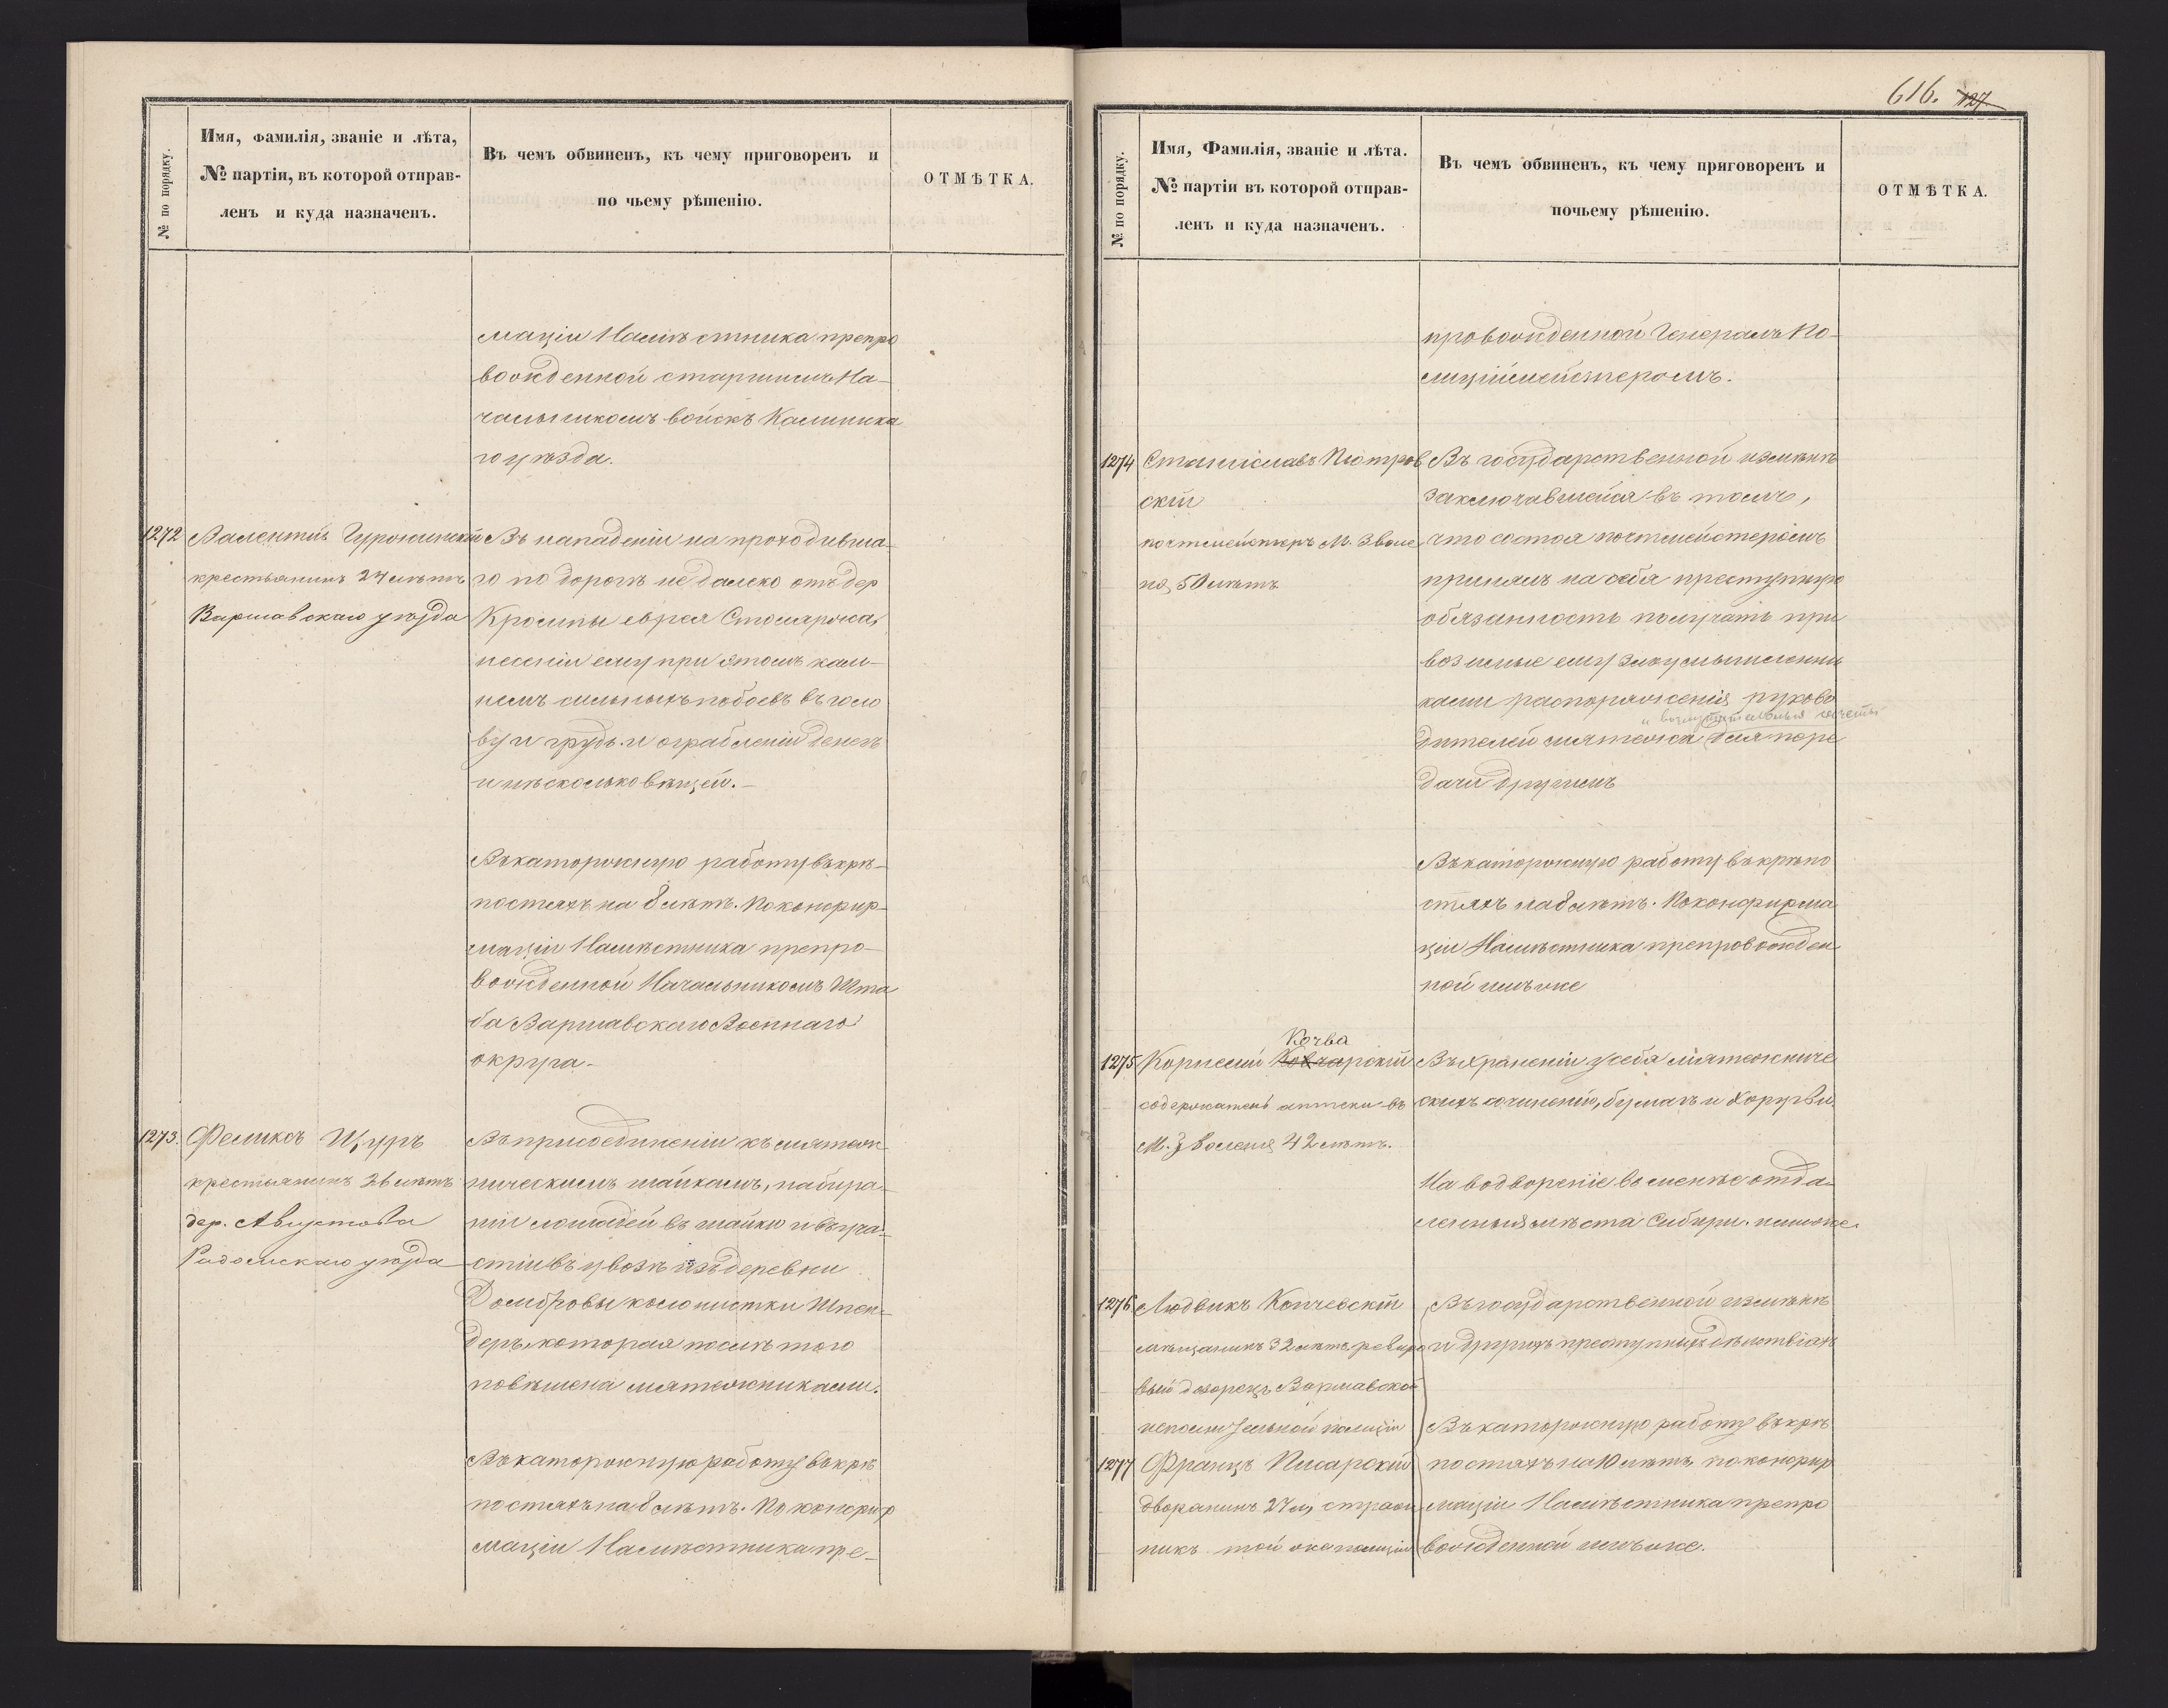 № по порядку.
Имя, фамилія, званіе и лѣта,
№ партіи, въ которой отправ-
ленъ и куда назначенъ.
Въ чемъ обвиненъ, къ чему приговоренъ и
по чьему рѣшенію.
ОТМѢТКА.
маціи Намѣстника препро
вожденной старшимъ На-
чальникомъ войскъ
го уѣзда.
1272
Валентій
крестьянинъ 24 лѣтъ
Варшавскаго уѣзда
Въ нападеніи на проходивша-
го по дорогѣ не далеко отъ дер
еврея
несеніи ему при этомъ кам-
немъ сильныхъ побоевъ въ голо
ву и грудь и ограбленіи денегъ
и нѣсколько вещей.-
Въ каторжную работу въ крѣ-
постяхъ на 8 лѣтъ. По конфир-
маціи Намѣстника препро-
вожденной Начальникомъ Шта
ба Варшавскаго Военнаго
округа-
1273.
Феликсъ Щуръ
крестьянинъ 26 лѣтъ
дер. Августова
Радомскаго уѣзда
Въ присоединеніи къ мятеж
ническимъ шайкамъ, набира-
ніи лошадей въ шайки и въ уча-
стіи въ увозѣ изъ деревни
Домбровы колонистки Шпен-
деръ, которая послѣ того
повѣшена мятежниками.
Въ каторжную работу въ крѣ
постяхъ на 8 лѣтъ. По конфир
маціи Намѣстника пре-
616. 127
№ по порядку.
Имя, Фамилія, званіе и лѣта.
№ партіи въ которой отправ-
ленъ и куда назначенъ.
Въ чемъ обвиненъ, къ чему приговоренъ и
почьему рѣшенію.
ОТМѢТКА.
провожденной Генералъ По-
лиціймейстеромъ.
1274
Станиславъ Піотров
скій
почтмейстеръ М. Зволе
ня, 50 лѣтъ
Въ государственной измѣнѣ
заключавшейся въ томъ,
что состоя почтмейстеромъ
принялъ на себя преступную
обязанность получать при
возимые ему злоумышленни
ками распоряженія руково
и возмутительныя газеты
дителей мятежа для пере
дачи другимъ
Въ каторжную работу въ крѣпо
стяхъ на 8 лѣтъ. По конфирма
ціи Намѣстника препровожден
ной имъ же
1275
Кочва
Корнелій Ковчарскій
содержатель аптеки въ
М. Зволеня 42 лѣтъ.
Въ храненіи у себя мятежниче
скихъ сочиненій, бумагъ и хоругви.
На водвореніе въ менѣе отда-
ленныя мѣста Сибири. имъ же.
1276
Людвикъ Копчевскій
мѣщанинъ 32 лѣтъ ревиро
вый дозорецъ Варшавской
исполнительной полиціи
Въ государственной измѣнѣ
и другихъ преступныхъ дѣйствіяхъ
Въ каторжную работу въ крѣ
1277
Францъ Писарскій
дворянинъ 27 л, страж
никъ той же полиціи
постяхъ на 10 лѣтъ по конфир
маціи Намѣстника препро
вожденной имъ же.